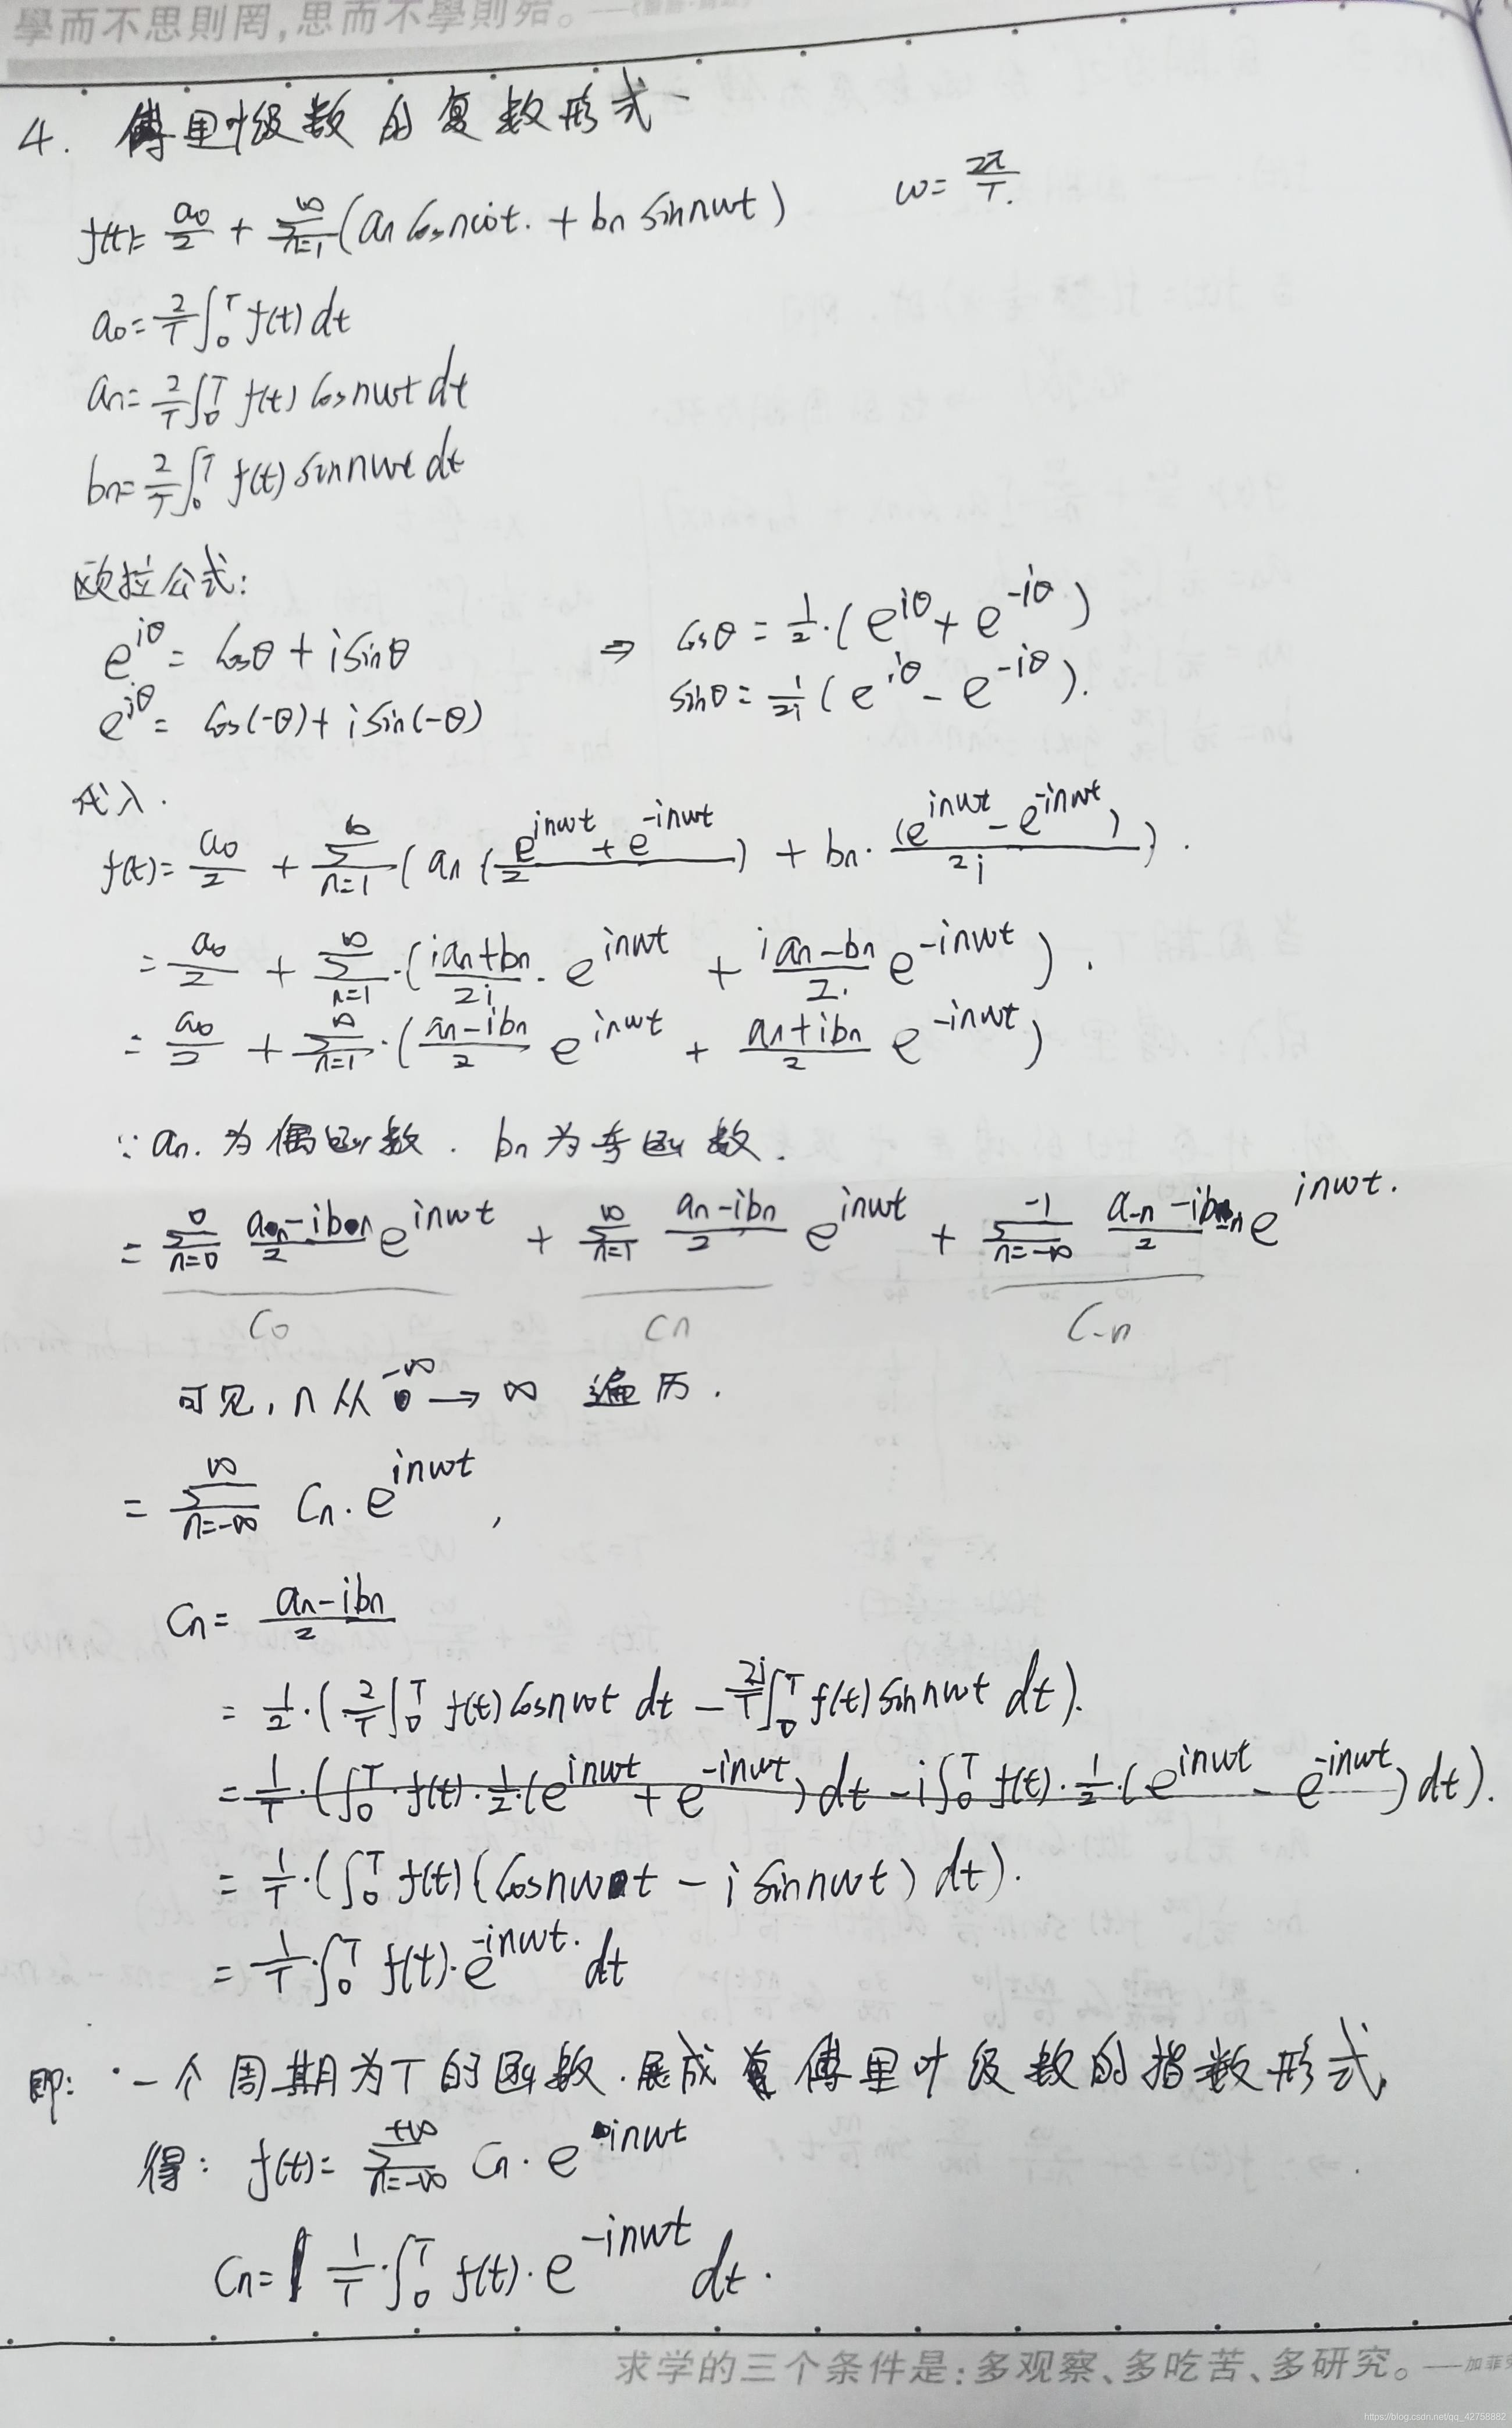 學而不思則罔,思而不學則殆。
4. 傅里叶级数的复数形式
f(t)= a₀/2 + ∑_{n=1}^{∞}(aₙ cos nωt. + bₙ sin nωt) ω= 2π/T.
a₀= 2/T ∫₀ᵀ f(t) dt
aₙ= 2/T ∫₀ᵀ f(t) cos nωt dt
bₙ= 2/T ∫₀ᵀ f(t) sin nωt dt
欧拉公式:
e^{iθ} = cosθ + i sinθ ⇒ cosθ = 1/2·( e^{iθ} + e^{-iθ} )
e^{iθ} = cos(-θ) + i sin(-θ) sinθ = 1/2i ( e^{iθ} - e^{-iθ} ).
代入.
f(t)= a₀/2 + ∑_{n=1}^{∞} ( aₙ ( (e^{inωt} + e^{-inωt})/2 ) + bₙ· (e^{inωt} - e^{-inωt})/2i ) .
= a₀/2 + ∑_{n=1}^{∞}·( (iaₙ+bₙ)/2i · e^{inωt} + (iaₙ-bₙ)/2. e^{-inωt} ) .
= a₀/2 + ∑_{n=1}^{∞}·( (aₙ-ibₙ)/2 e^{inωt} + (aₙ+ibₙ)/2 e^{-inωt} )
∵ aₙ. 为偶函数. bₙ 为奇函数.
= ∑_{n=0}^{0} (aₙ-ibₙ)/2 e^{inωt} + ∑_{n=1}^{∞} (aₙ-ibₙ)/2 e^{inωt} + ∑_{n=-∞}^{-1} (a₋ₙ-ib₋ₙ)/2 e^{inωt}.
C₀ Cₙ C₋ₙ
可见, n 从 -∞ → ∞ 遍历.
= ∑_{n=-∞}^{∞} Cₙ· e^{inωt} ,
Cₙ= (aₙ-ibₙ)/2
= 1/2·( 2/T ∫₀ᵀ f(t) cos nωt dt - 2i/T ∫₀ᵀ f(t) sin nωt dt ).
= 1/T·( ∫₀ᵀ·f(t)·1/2·( e^{inωt} + e^{-inωt} ) dt - i∫₀ᵀ f(t)·1/2·( e^{inωt} - e^{-inωt} ) dt ).
= 1/T·( ∫₀ᵀ f(t) ( cos nωt - i sin nωt ) dt ).
= 1/T·∫₀ᵀ f(t)·e^{-inωt}. dt
即: 一个周期为T的函数.展成傅里叶级数的指数形式,
得: f(t)= ∑_{n=-∞}^{+∞} Cₙ· e^{inωt}
Cₙ= 1/T·∫₀ᵀ f(t)· e^{-inωt} dt.
求学的三个条件是:多观察、多吃苦、多研究。——加菲
https://blog.csdn.net/qq_42758882